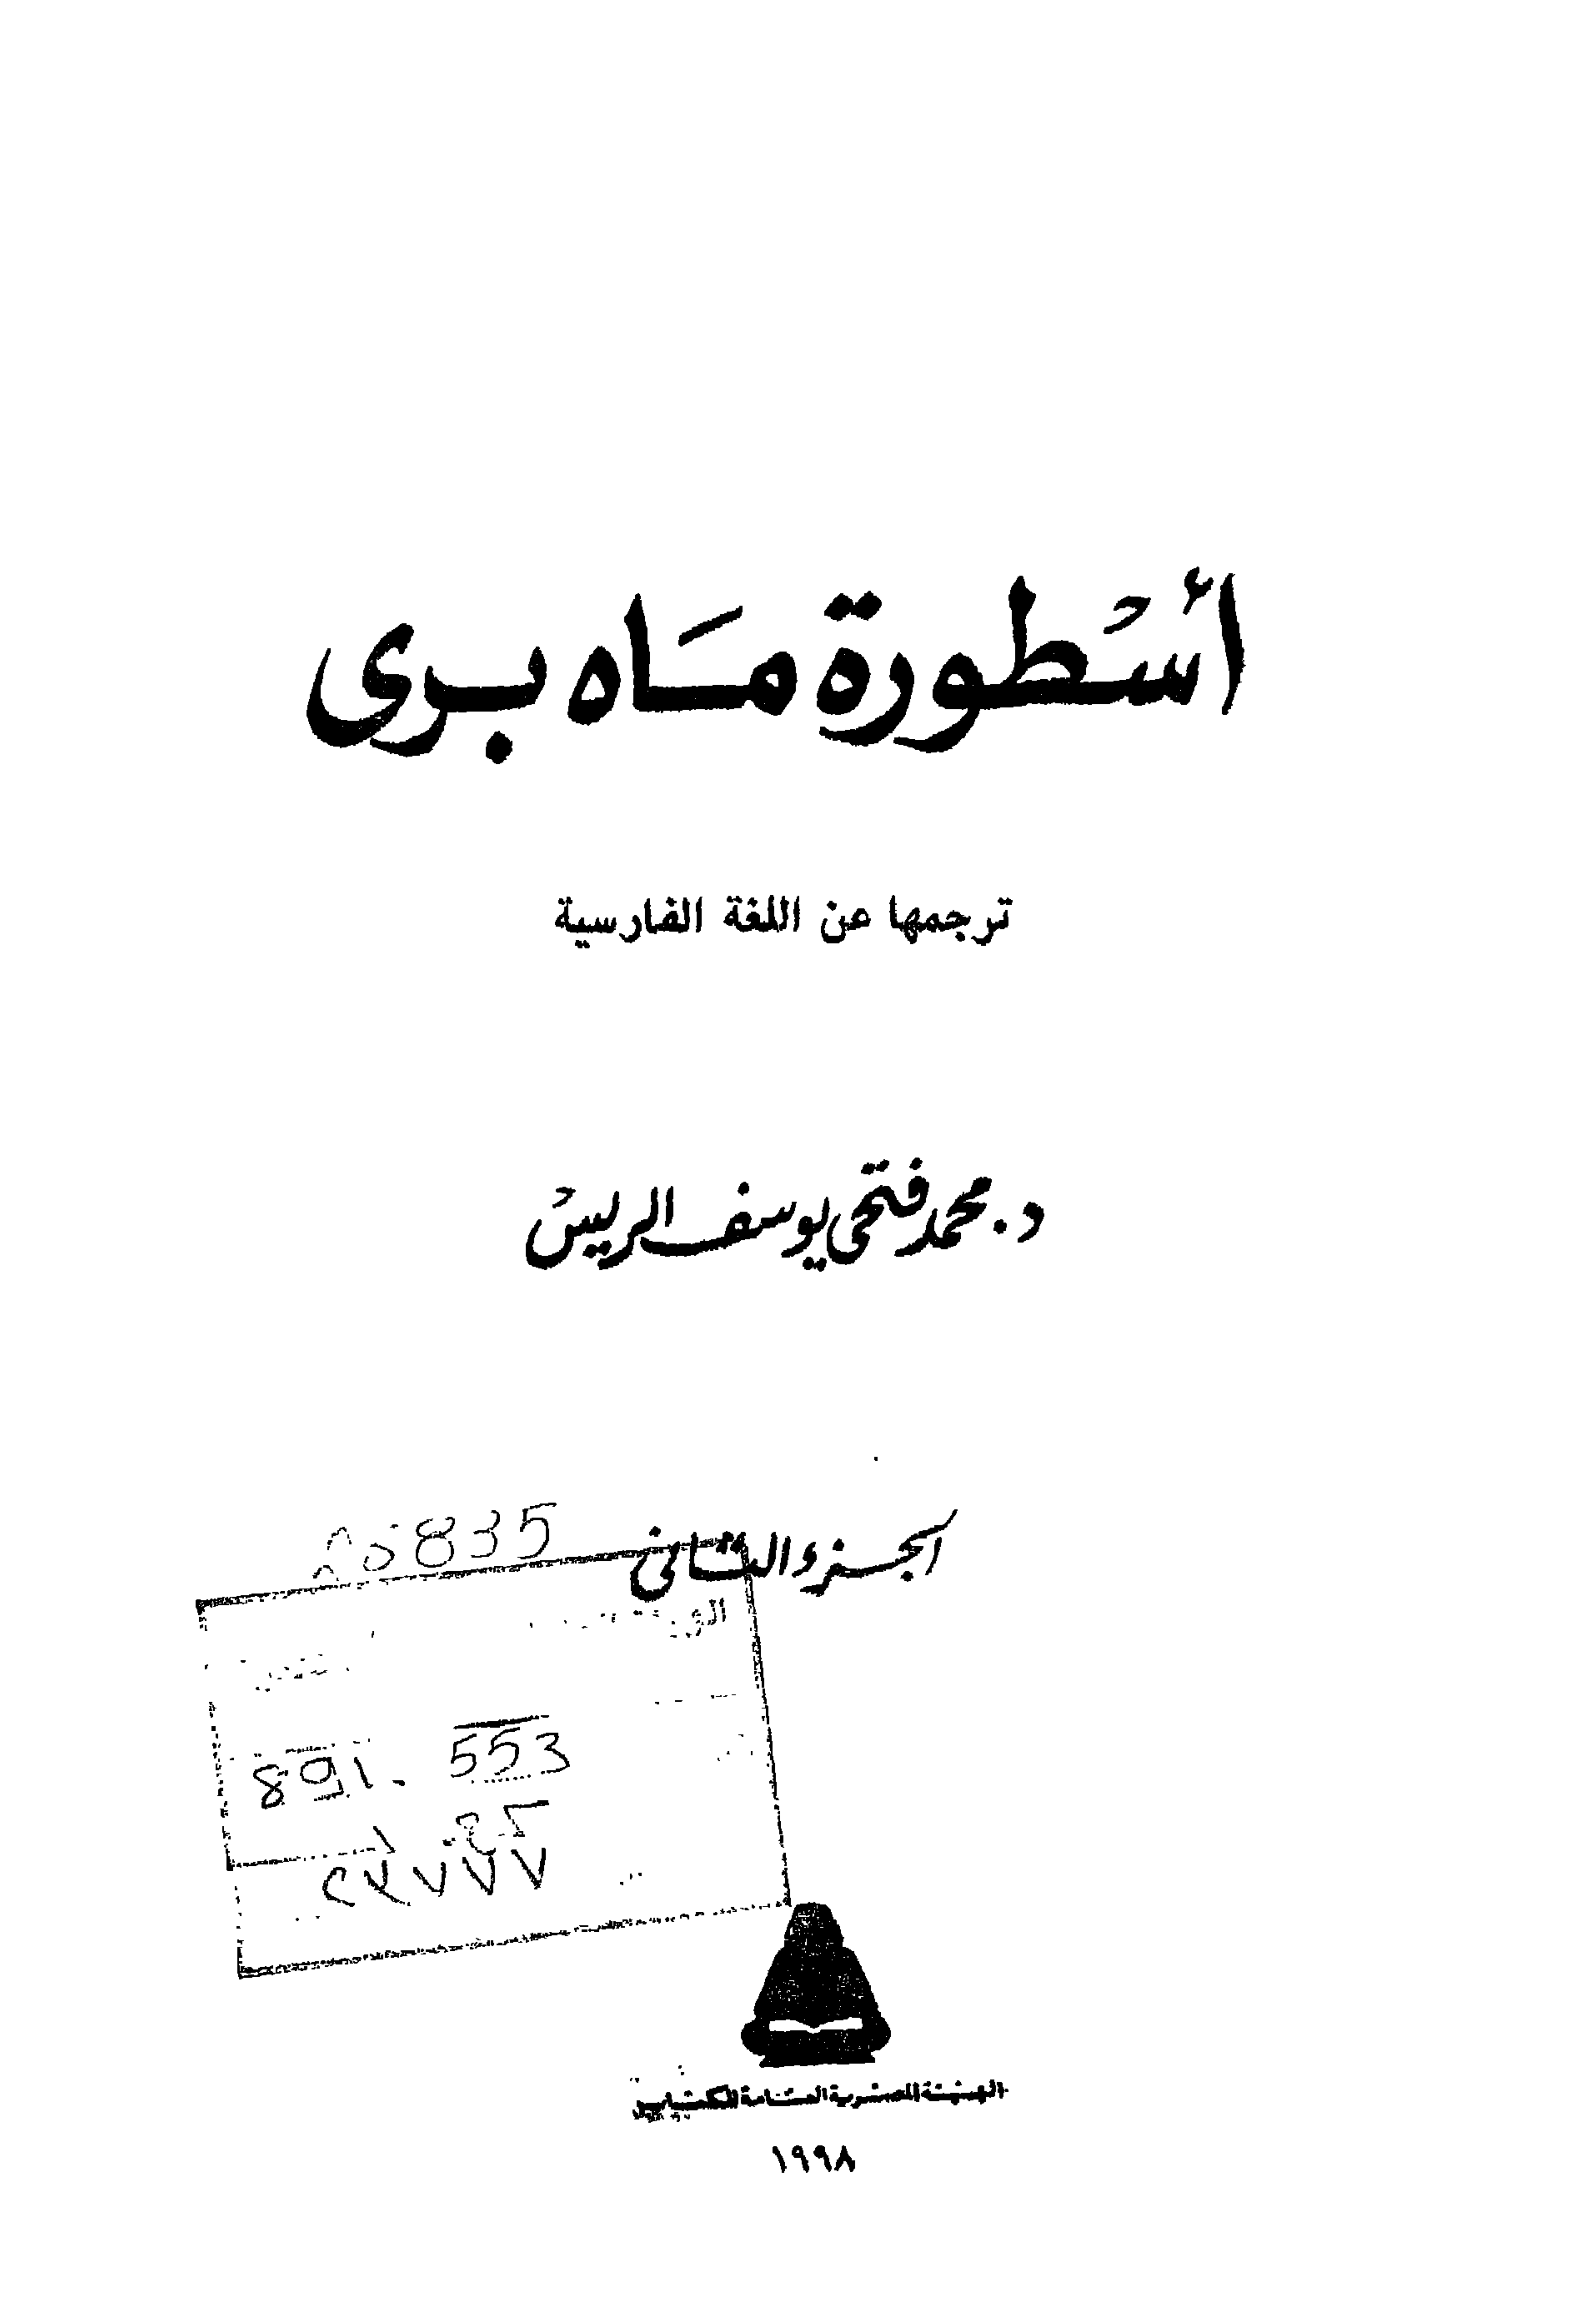 أسْطورة مَاه برى
ترجمها عن اللغة الفارسية
د. محمد فتحى يوسف الريس
الجزء الثانى
835
891. 553
الهيئة المصرية العامة للكتاب
١٩٩٨